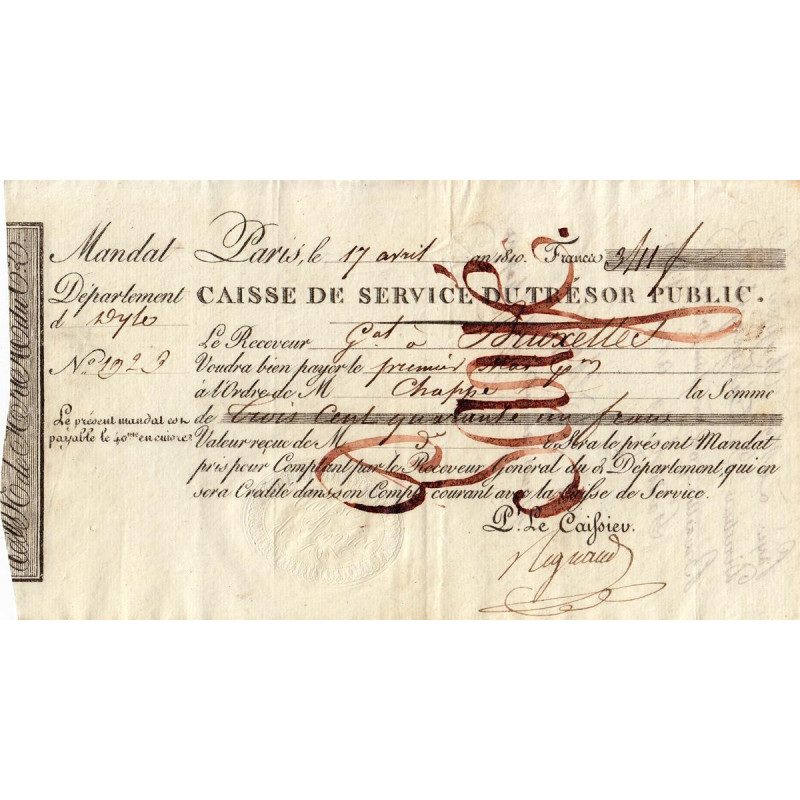 Mandat Paris, le 17 avril an 1810. Francs
Département CAISSE DE SERVICE DU TRÉSOR PUBLIC.
d Dyle
Le Receveur Gal à Bruxelles
No. 1923 Voudra bien payer le premier
à l'Ordre de M Chappe la Somme
de trois cent quarante un francs
Le présent mandat est
payable le 40me en cuivre.
Valeur reçue de M d° & Sera le présent Mandat
pris pour Comptant par le Receveur Général du d. Département, qui en
sera Crédité dans son Compte courant avec la Caisse de Service.
Pr. Le Caissier.